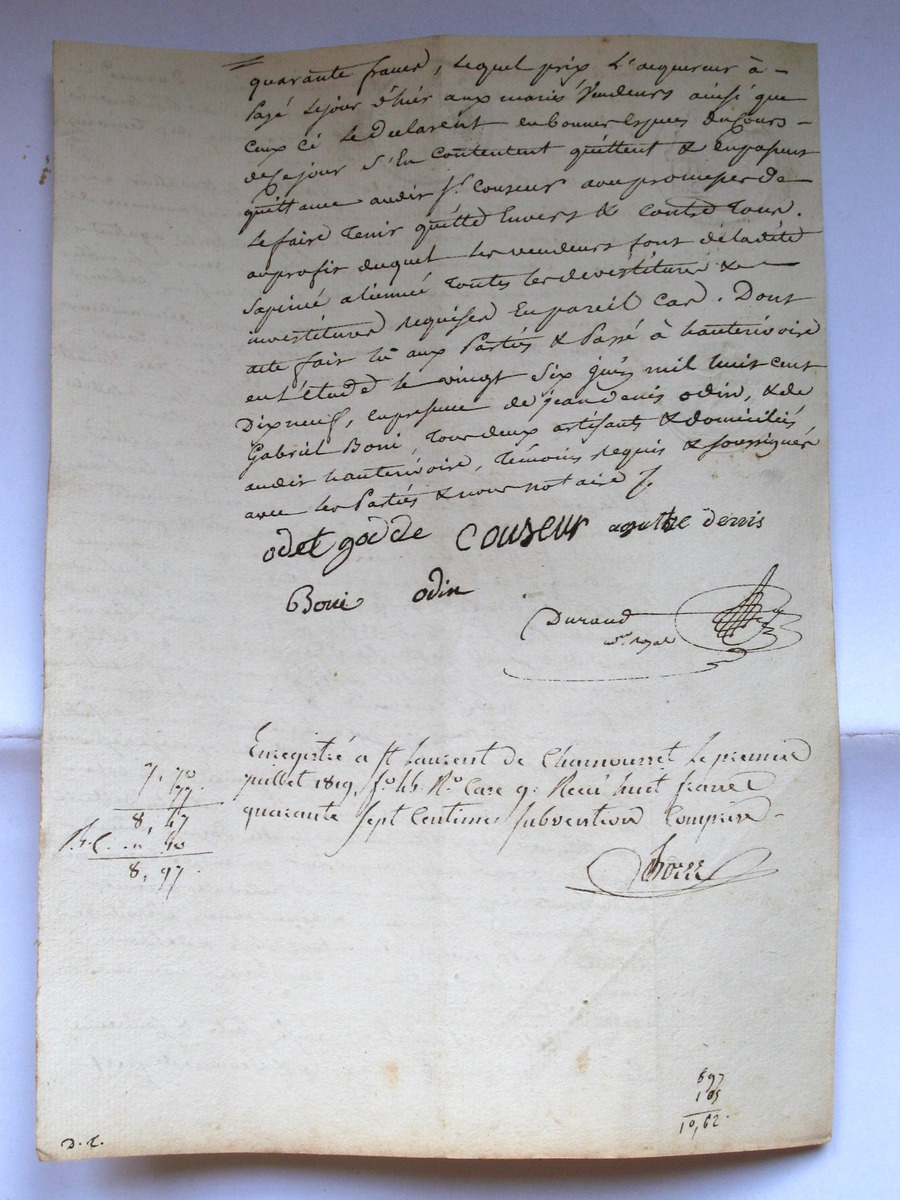 quarante francs, lequel prix l'acquereur à
Payé le jour d'hier aux mariés Vendeurs ainsi que
ceux ci le declarent en bonnes espèces du Cours
de ce jour s'en Contentent quittent & en passent
quittance audit Sr. Couseur avec promesse de
le faire tenir quitte Envers & Contre Tous.
au profit duquel les vendeurs font de ladite
Sapiné alienné Toutes les devestitures &
investitures requises En pareil Cas. Dont
acte fait lû aux Parties & Passé à hauterivoire
en l'étude le vingt Six juin mil huit cent
Dixneuf, en presence de jean denis odin, & de
Gabriel Boni, Tous deux artisants & domiciliés
audit hauterivoire, Témoins requis & soussignés
avec les Parties & nous notaire /.
odet godde Couseur agathe denis
Boni odin
Durand
nre. royal
Enregistré a St Laurent de Chamousset le premier
juillet 1819, fo. 44 Ro. Case 9. Recu huit francs
quarante Sept Centimes Subvention Comprise
7, 70
77
8, 47
50
8, 97
897
165
10,62
D. C.